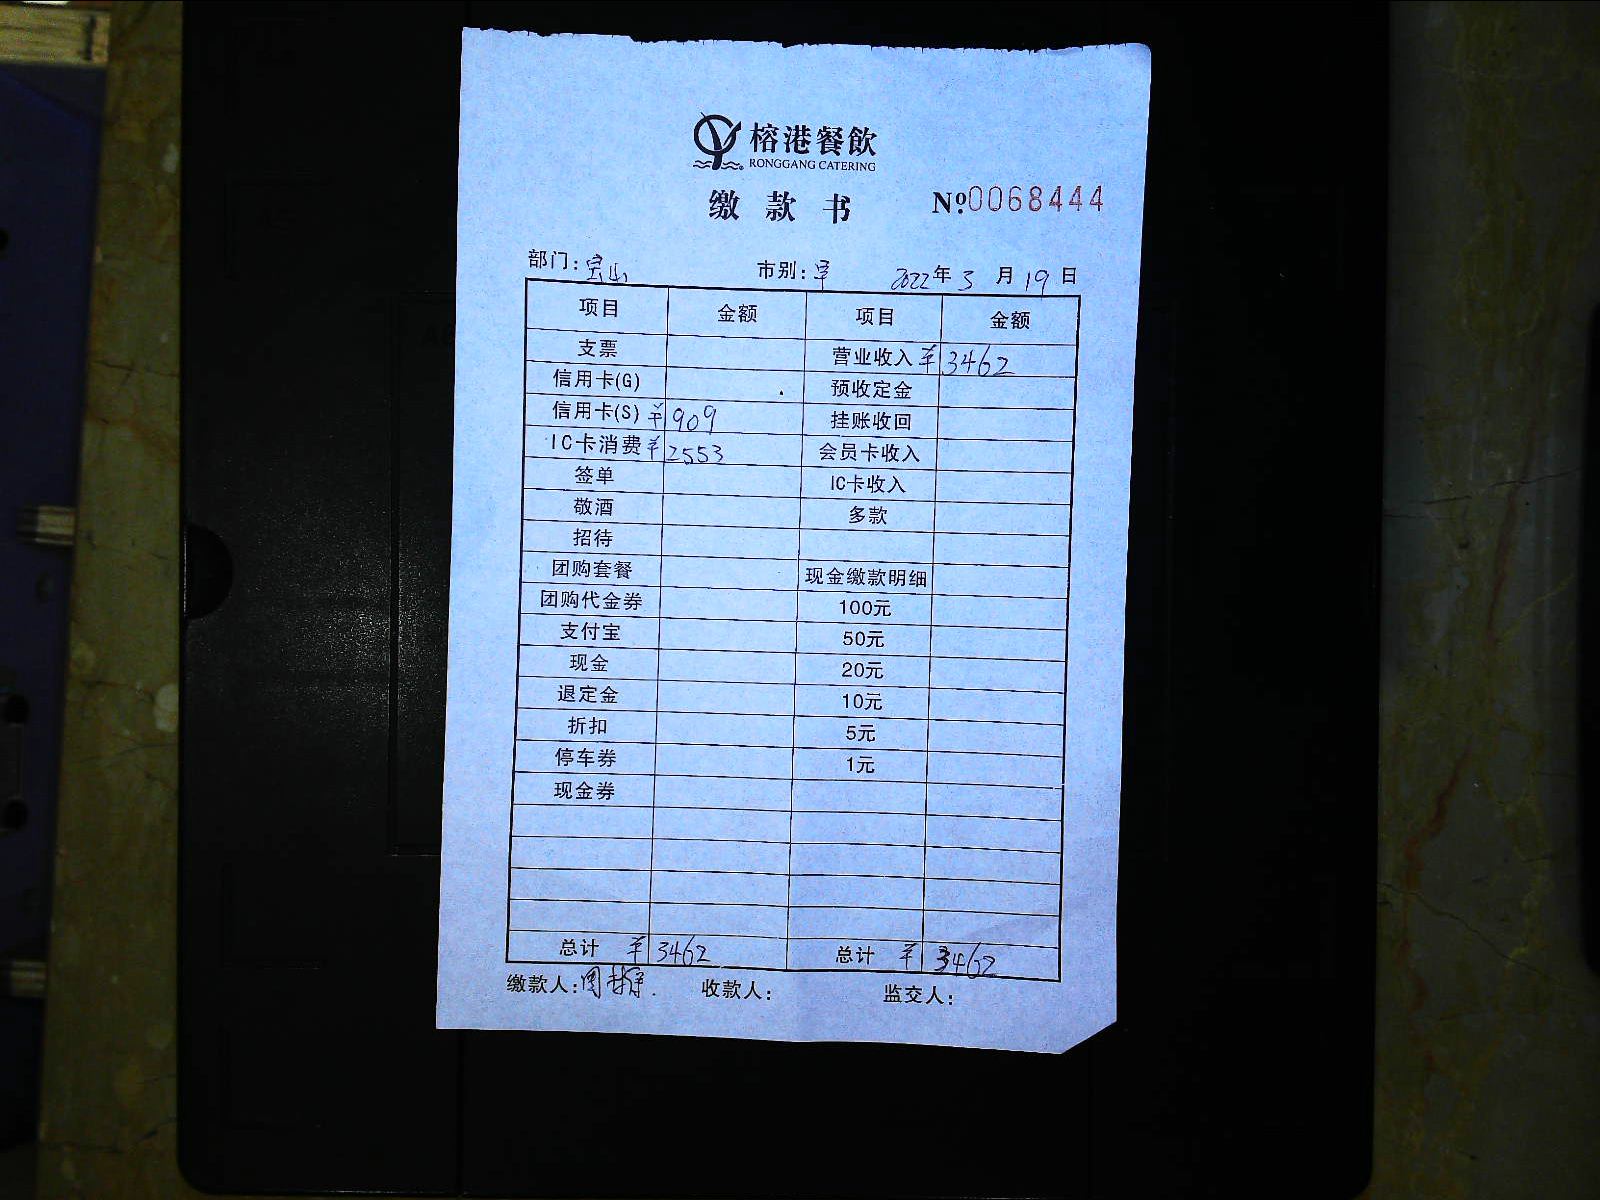 榕港餐飲
RONGGANG CATERING
缴款书 №0068444
部门：宝山 市别：早 2022年3月19日
项目 金额 项目 金额
支票 营业收入 ¥3462
信用卡(G) 预收定金
信用卡(S) ¥909 挂账收回
IC卡消费 ¥2553 会员卡收入
签单 IC卡收入
敬酒 多款
招待
团购套餐 现金缴款明细
团购代金券 100元
支付宝 50元
现金 20元
退定金 10元
折扣 5元
停车券 1元
现金券
总计 ¥3462 总计 ¥3462
缴款人： 收款人： 监交人：